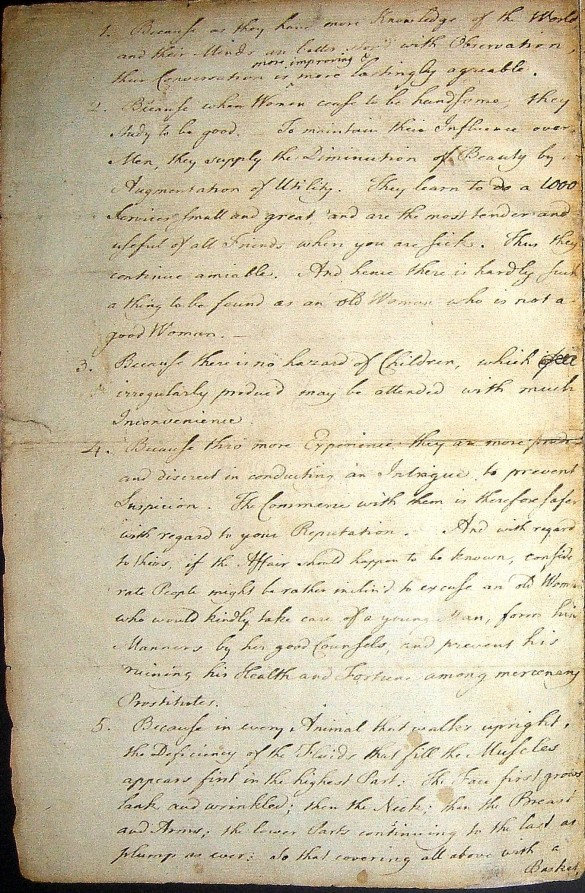 1. Because as they have more Knowledge of the World
and their Minds are better stor'd with Observation,
more improving &
their Conversation is more lastingly agreable.
2. Because when Women cease to be handsome, they
study to be good. — To maintain their Influence over
Men, they supply the Diminution of Beauty by
Augmentation of Utility. They learn to do a 1000
Services small and great, and are the most tender and
useful of all Friends when you are sick. Thus they
continue amiable. And hence there is hardly such
a thing to be found as an old Woman who is not a
good Woman. —
3. Because there is no hazard of Children, which
irregularly produc'd may be attended with much
Inconvenience.
4. Because thro' more Experience, they are more prudt
and discreet in conducting an Intrigue to prevent
Suspicion. The Commerce with them is therefore safer
with regard to your Reputation. And with regard
to theirs, if the Affair should happen to be known, conside
rate People might be rather inclin'd to excuse an old Woman
who would kindly take care of a young Man, form his
Manners by her good Counsels, and prevent his
ruining his Health and Fortune among mercenary
Prostitutes.
5. Because in every Animal that walks upright,
the Deficiency of the Fluids that fill the Muscles
appears first in the highest Part: The Face first grows
lank and wrinkled; then the Neck; then the Breast
and Arms; the lower Parts continuing to the last as
plump as ever: So that covering all above with a
Basket,